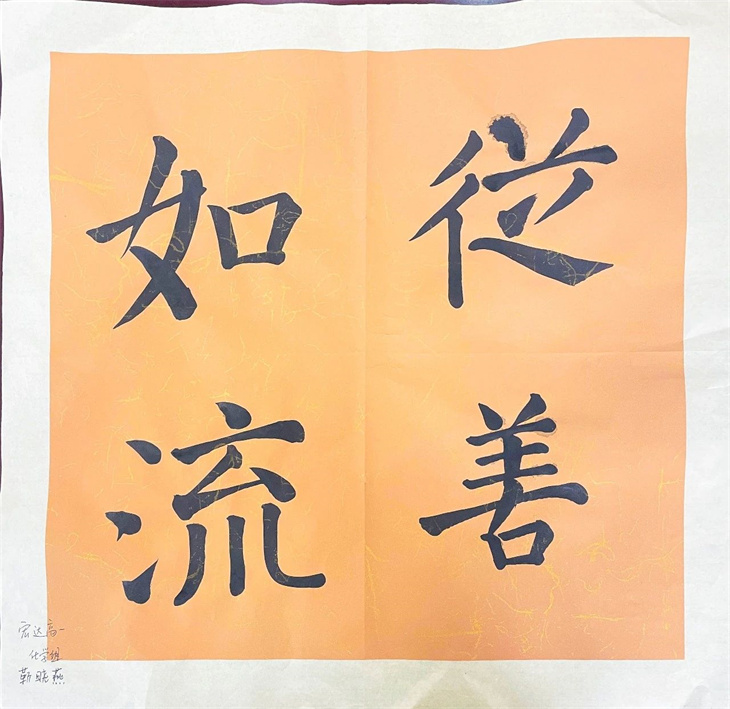 從善
如流
宏达高一
化学组
靳晓燕